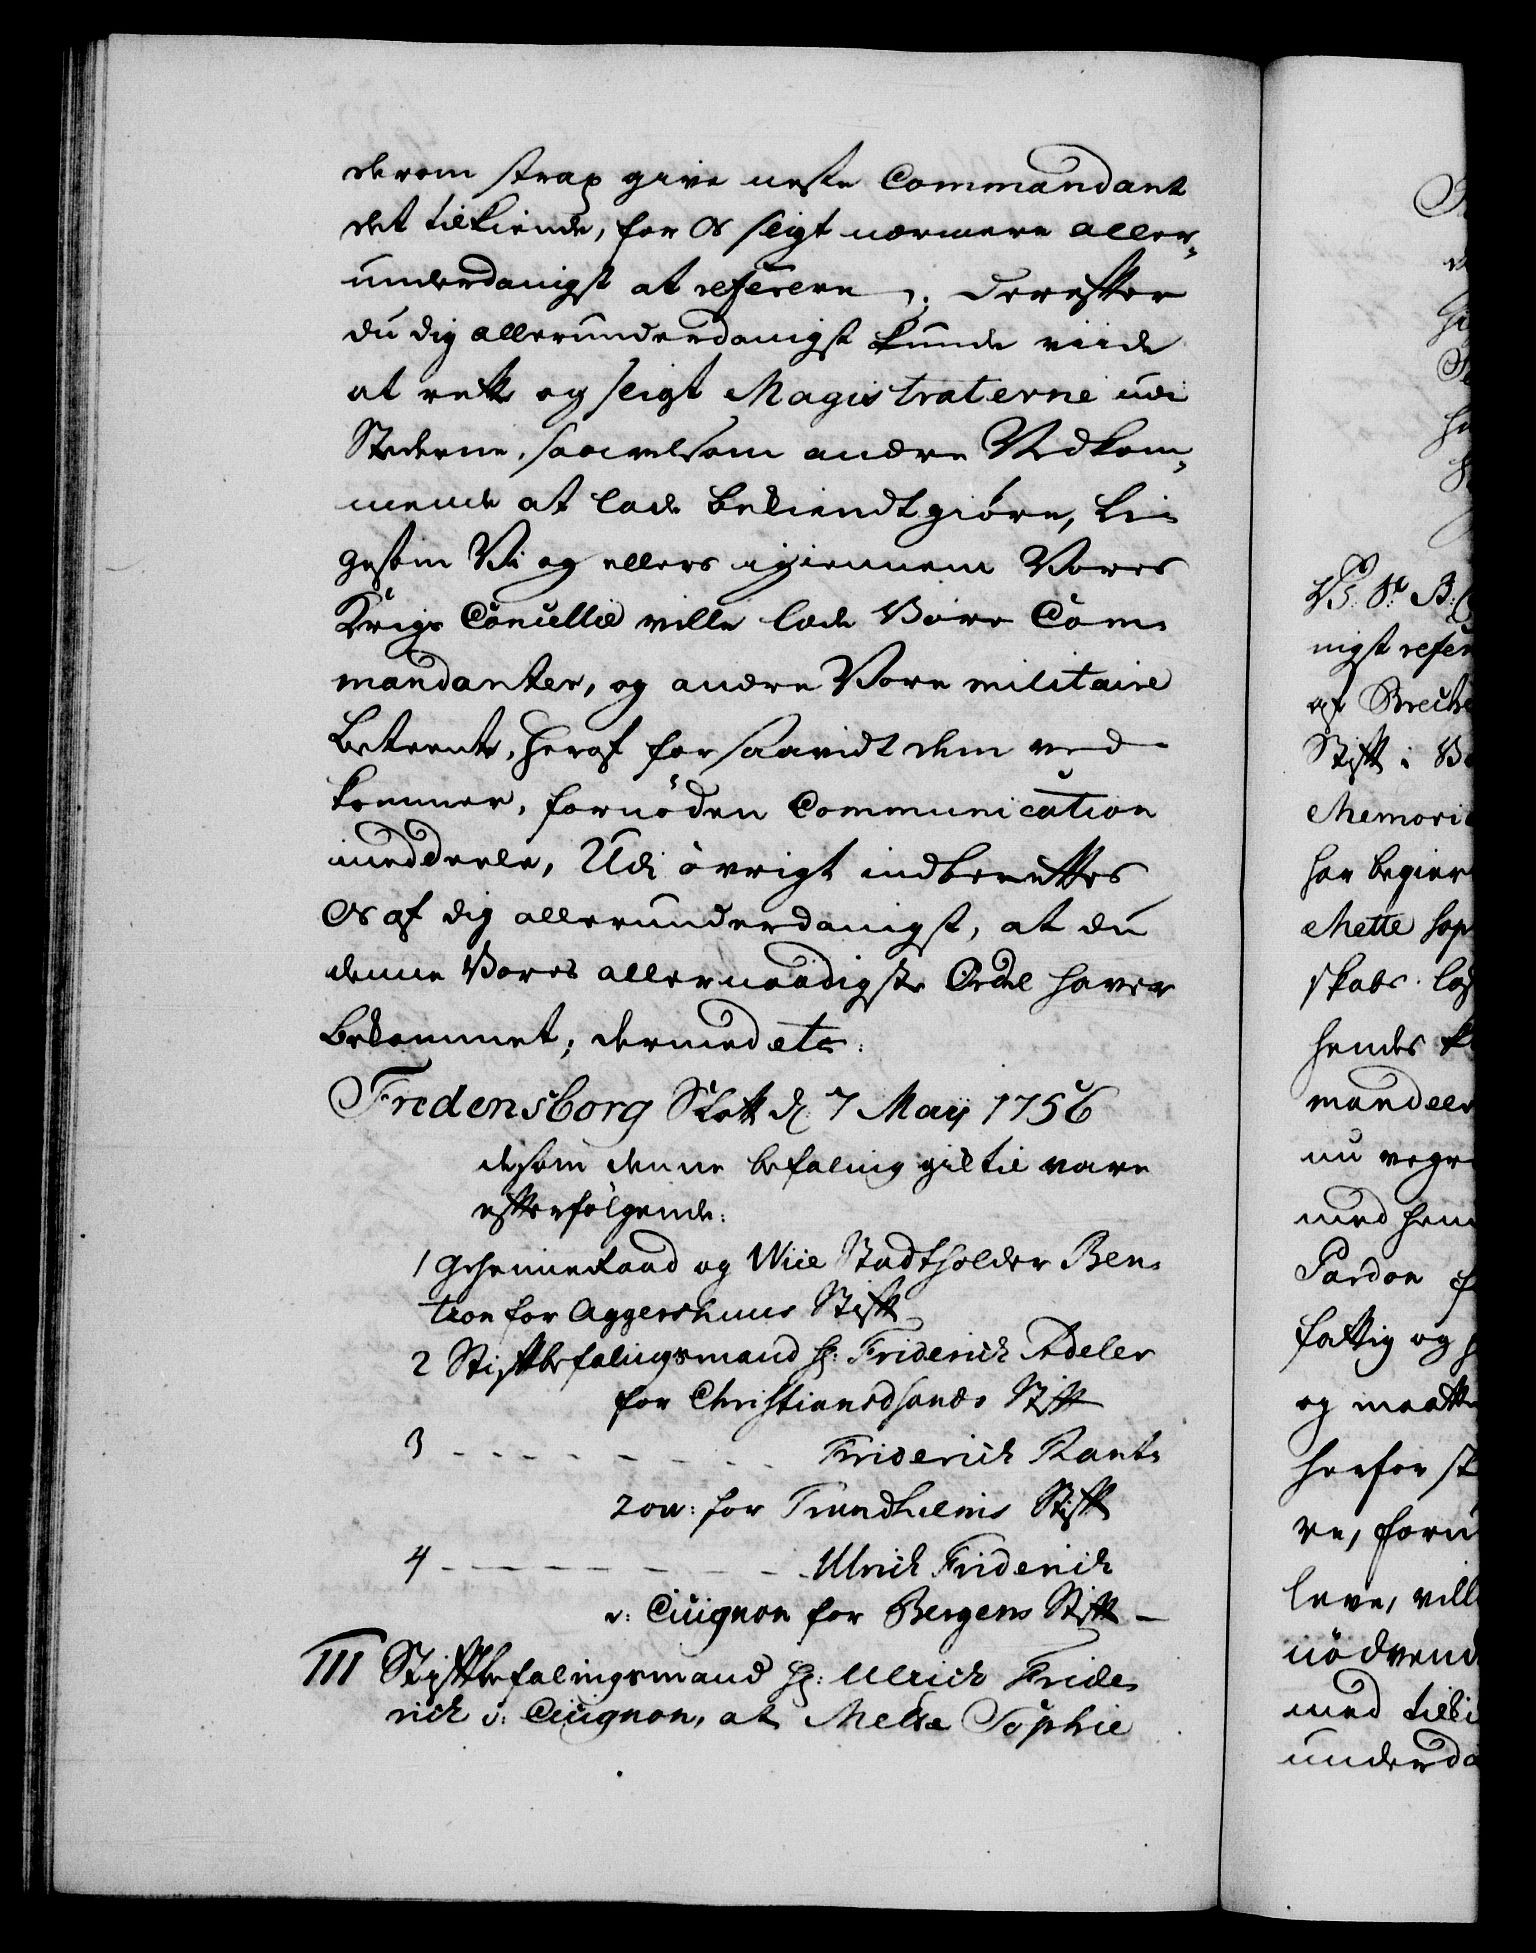 derom strax give neste Commandant
det tilkiende, for Os sligt nærmere aller-
underdanigst at referere. Derefter
du dig allerunderdanigst kunde viide
at rette og sligt Magistraterne udi
Stæderne, saavelsom andre Vedkom-
mende at lade bekiendtgiøre, Li-
gesom Vi og ellers igiennem Vores
Krigs Cancellie ville lade Vore Com-
mandanter, og andre Vore militaire
Betiente, heraf forsaavidt dem ved-
kommer, fornöden Communication
meddeele, Udi övrigt indberettes
Os af dig allerunderdanigst, at du
denne Vores allernaadigste Ordre haver
bekommet; dermed etc:
Fredensborg Slott d: 7 Maij 1756
ligesom denne befaling gik til vare
efterfölgende:
1 Geheimeraad og Vice Stadtholder Ben-
tzon for Aggershuus Stift
2 Stiftbefalingsmand H: Friderich Adeler
for Christiansands Stift
3 - - - - - - - Friderich Rant-
zou: for Trundhiems Stift
4 - - - - - - - Ulrich Friderich
v: Cicignon for Bergens Stift -
III Stiftbefalingsmand H: Ulrich Fride-
rich v: Cicignon, at Mette Sophie
V: S: B:
nigst refer
af
Stift i B
Memori
har begier
Mette Sop
skabs
hendes
mandeer
nu
med hen
Pardon
fattig og
og maatte
herfor st
re, foru
leve, vill
nödvend
med tilki
underda